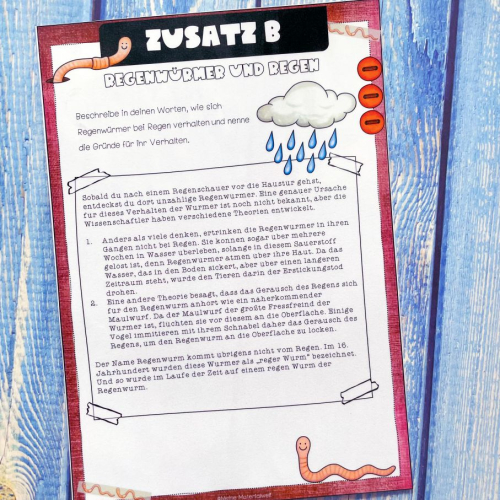 ZUSATZ B
REGENWÜRMER UND REGEN
Beschreibe in deinen Worten, wie sich
Regenwürmer bei Regen verhalten und nenne
die Gründe für ihr Verhalten.
Sobald du nach einem Regenschauer vor die Haustür gehst,
entdeckst du dort unzählige Regenwürmer. Eine genauer Ursache
für dieses Verhalten der Würmer ist noch nicht bekannt, aber die
Wissenschaftler haben verschiedene Theorien entwickelt.
1. Anders als viele denken, ertrinken die Regenwürmer in ihren
Gängen nicht bei Regen. Sie können sogar über mehrere
Wochen in Wasser überleben, solange in diesem Sauerstoff
gelöst ist, denn Regenwürmer atmen über ihre Haut. Da das
Wasser, das in den Boden sickert, aber über einen längeren
Zeitraum steht, würde den Tieren darin der Erstickungstod
drohen.
2. Eine andere Theorie besagt, dass das Geräusch des Regens sich
für den Regenwurm anhört wie ein näherkommender
Maulwurf. Da der Maulwurf der größte Fressfreind der
Würmer ist, flüchten sie vor diesem an die Oberfläche. Einige
Vögel immitieren mit ihrem Schnabel daher das Geräusch des
Regens, um den Regenwurm an die Oberfläche zu locken.
Der Name Regenwurm kommt übrigens nicht vom Regen. Im 16.
Jahrhundert wurden diese Würmer als „reger Wurm" bezeichnet.
Und so wurde im Laufe der Zeit auf einem regen Wurm der
Regenwurm.